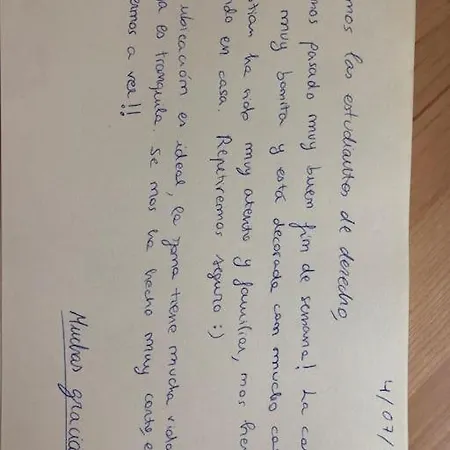 4/07/
mos las estudiantes de derecho,
mos pasado muy buen fin de semana! La ca
muy bonita y está decorada con mucho ca
tian ha sido muy atento y familiar, nos hie
do en casa. Repetiremos seguro :)
ubicación es ideal, la zona tiene mucha vida
a es tranquila. Se nos ha hecho muy corto, e
emos a ver!!
Muchas gracia